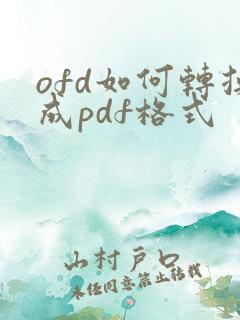 ofd如何轉换
成pdf格式
山村戶口
未經同意禁止转载